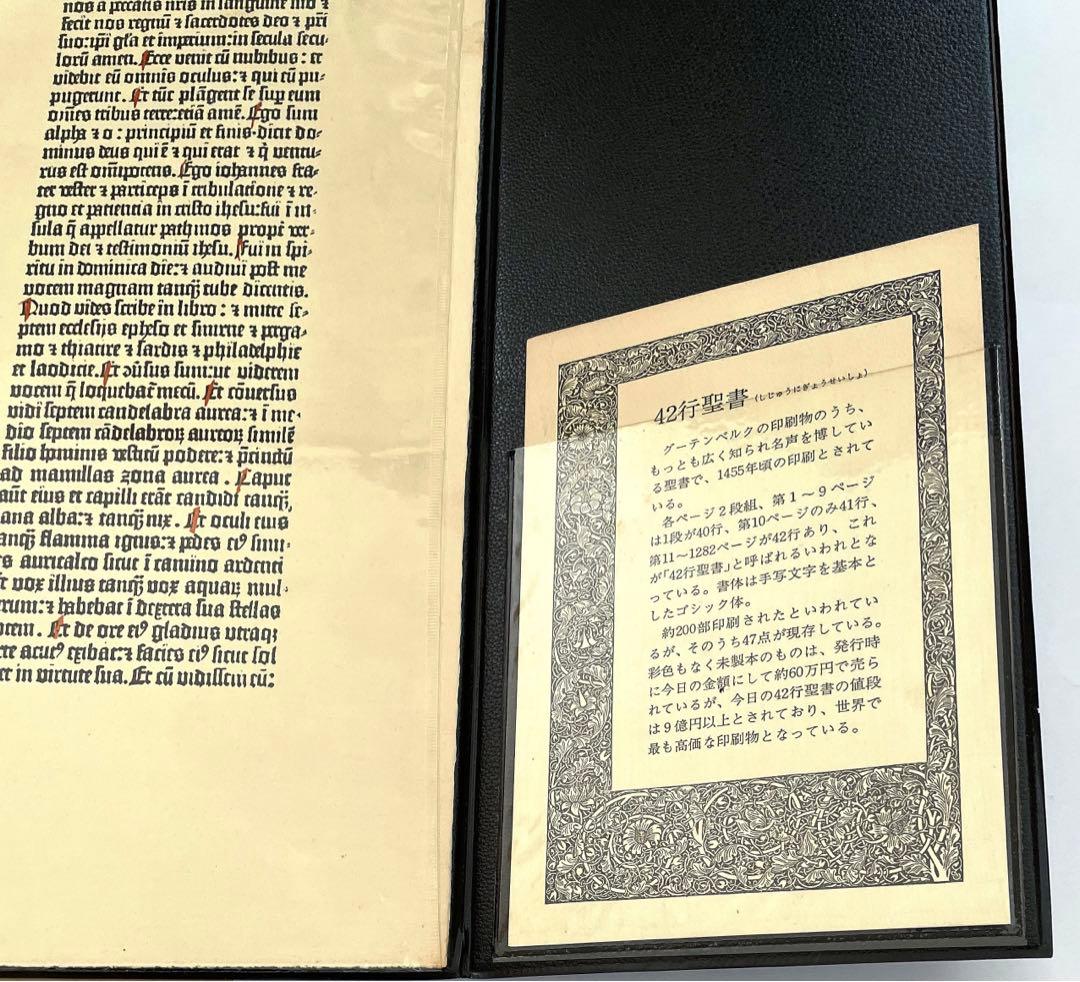 nos a peccatis nr̄is in sanguine suo ⁊
fecit nos regnū ⁊ sacerdotes deo ⁊ pr̄i
suo: ip̄i gl̄a et imperium: in secula secu⸗
lorū amen. Ecce venit cū nubibus: et
videbit eū omnis oculus: ⁊ qui eū pu⸗
pugerunt. Et tūc plāgent se sup̲ eum
om̄es tribus terre: etiā amē. Ego sum
alpha ⁊ o: principiū et finis. dicit do⸗
minus deus qui ē ⁊ qui erat ⁊ q̄ ventu⸗
rus est om̄ipotens. Ego iohannes fra⸗
ter vester ⁊ particeps ī tribulatione ⁊ re⸗
gno et patientia in cristo ihesu: fui ī in⸗
sula q̄ appellatur pathmos propt̄ ver⸗
bum dei ⁊ testimoniū ihesu. Fui in spi⸗
ritu in dominica die: ⁊ audiui post me
vocem magnam tanq̄ tube dicentis.
Quod vides scribe in libro: ⁊ mitte se⸗
ptem ecclesijs epheso et smirne ⁊ p̲ga⸗
mo ⁊ thiatire ⁊ sardis ⁊ philadelphie
et laodicie. Et ɔūsus sum: ut viderem
vocem q̄ loquebat̄ mecū. Et cōuersus
vidi septem candelabra aurea: ⁊ ī me⸗
dio septem cādelabroꝝ aureoꝝ similē
filio hominis vestitū podere: ⁊ p̄cinctū
ad mamillas zona aurea. Caput
aūt eius et capilli erāt candidi tanq̄
ana alba: ⁊ tanq̄ nix. Et oculi eius
anq̄ flamma ignis: ⁊ pedes eiꝰ simi⸗
s auricalco sicut ī camino ardenti
t vox illius tanq̄ vox aquaꝝ mul⸗
rum: ⁊ habebat ī dextera sua stellas
ptem. Et de ore eiꝰ gladius utraqꝫ
rte acutꝰ exibat: ⁊ facies eiꝰ sicut sol
et in virtute sua. Et cū vidissem eū:
42行聖書(しじゅうにぎょうせいしょ)
グーテンベルクの印刷物のうち、
もっとも広く知られ名声を博してい
る聖書で、1455年頃の印刷とされて
いる。
各ページ2段組、第1～9ページ
は1段が40行、第10ページのみ41行、
第11～1282ページが42行あり、これ
が「42行聖書」と呼ばれるいわれとな
っている。書体は手写文字を基本と
したゴシック体。
約200部印刷されたといわれてい
るが、そのうち47点が現存している。
彩色もなく未製本のものは、発行時
に今日の金額にして約60万円で売ら
れているが、今日の42行聖書の値段
は9億円以上とされており、世界で
最も高価な印刷物となっている。